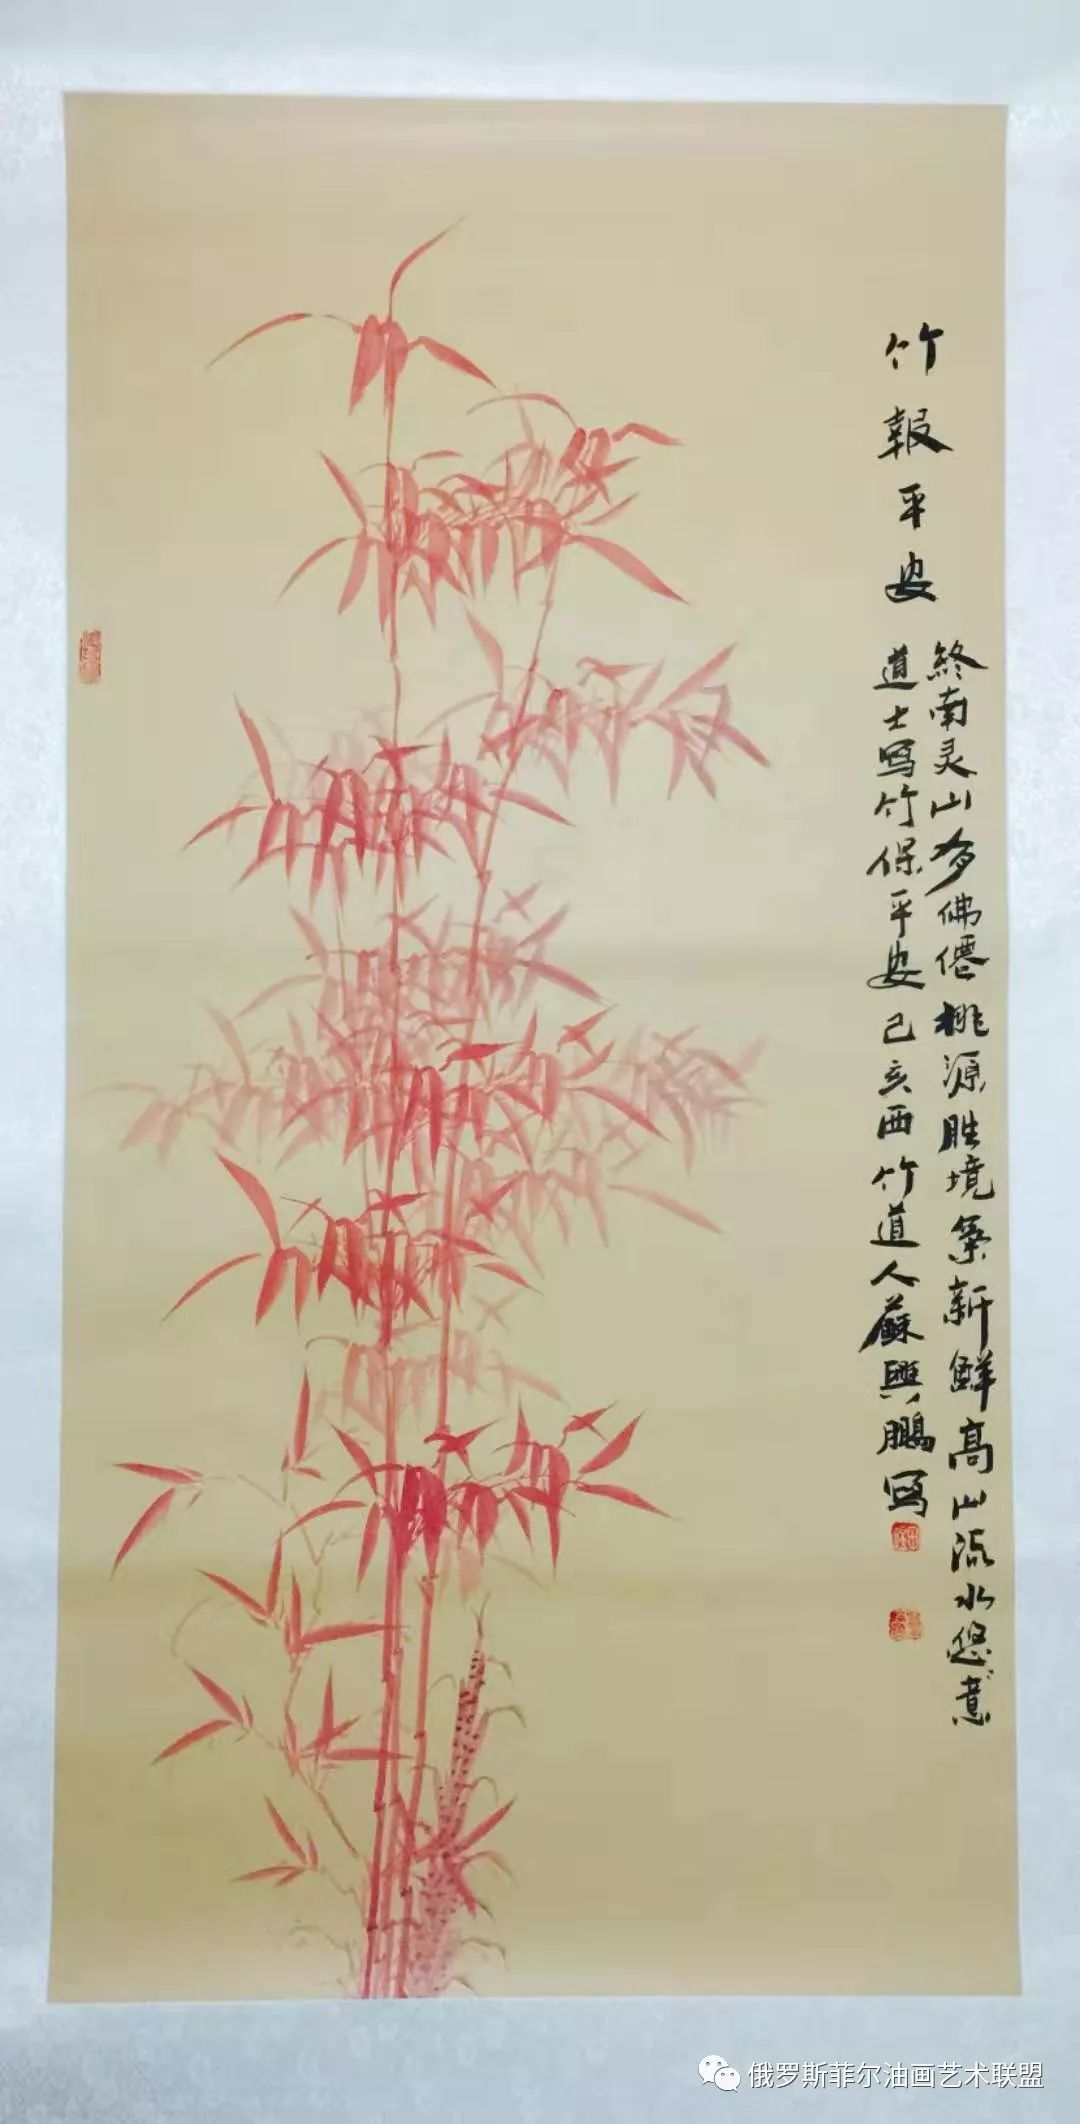 竹報平安
終南灵山多佛僊桃源胜境築新鮮高山流水悠
道士写竹保平安己亥西竹道人蘇興鵬寫
俄罗斯菲尔油画艺术联盟